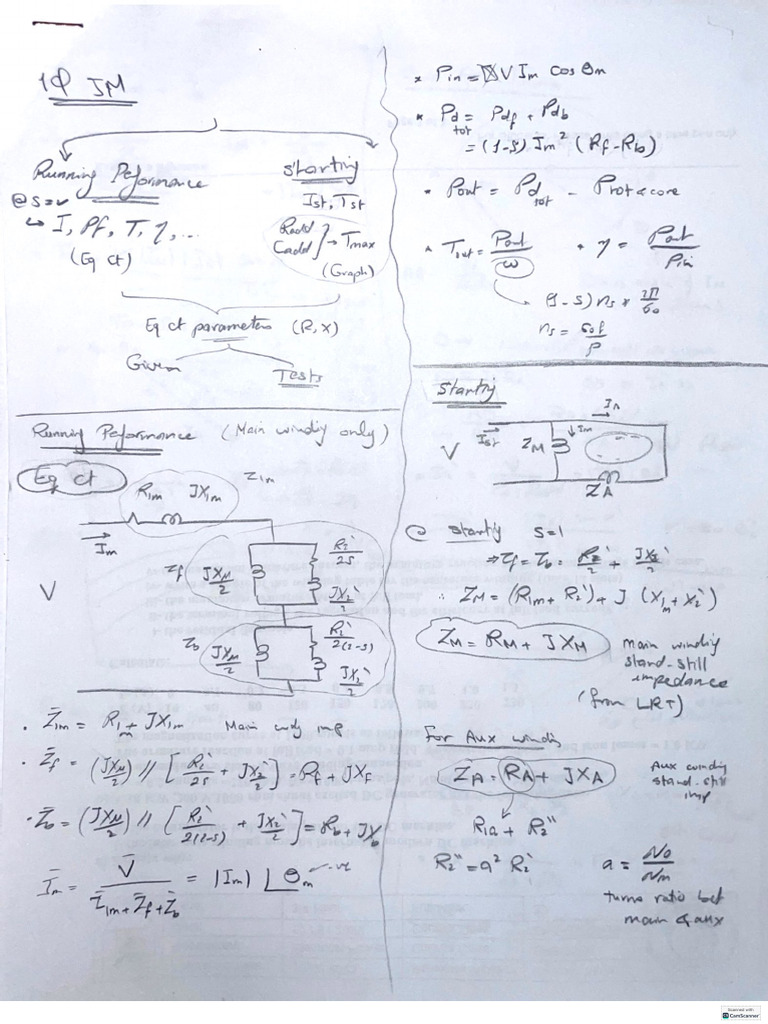 1Φ IM
Running Peformance
@ S = ✓
↳ I, Pf, T, η, ...
(Eq ct)
Starting
Ist, Tst
Radd
Cadd } → Tmax
(Graph)
Eq ct parameters (R, X)
Given
Tests
Running Peformance (Main winding only)
Eq ct
R1m JX1m Z1m
Im
V
Zf JXM/2 R2`/2S JX2`/2
Zb JXM/2 R2`/2(2-S) JX2`/2
. Z̄1m = R1m + JX1m Main only imp
. Z̄f = (JXM/2) // [R2`/2S + JX2`/2] = Rf + JXf
. Z̄b = (JXM/2) // [R2`/2(2-S) + JX2`/2] = Rb + JXb
Īm = V̄ / (Z̄1m + Z̄f + Z̄b) = |Im| ∠θm -ve
* Pin = V Im cos θm
* Pd tot = Pdf + Pdb
= (1-S) Im² (Rf - Rb)
* Pout = Pd tot - Prot & core
* Tout = Pout/ω * η = Pout/Pin
(1-S) ns * 2π/60
ns = 60f/P
Starting
IA
Ist ZM Im
V
ZA
@ Starting S=1
→ Zf = Zb = R2`/2 + JX2`/2
∴ ZM = (R1m + R2`) + J (X1m + X2`)
ZM = RM + JXM
main winding
stand-still
impedance
(from LRT)
For Aux winding
ZA = RA + JXA
Aux winding
stand-still
imp
R1a + R2``
R2`` = a² R2` a = Na/Nm
turns ratio bet
main & aux
Scanned with
CamScanner